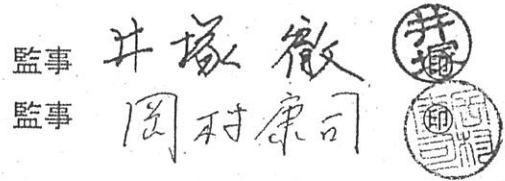 監事 井塚 徹 井塚
監事 岡村康司 ㊞